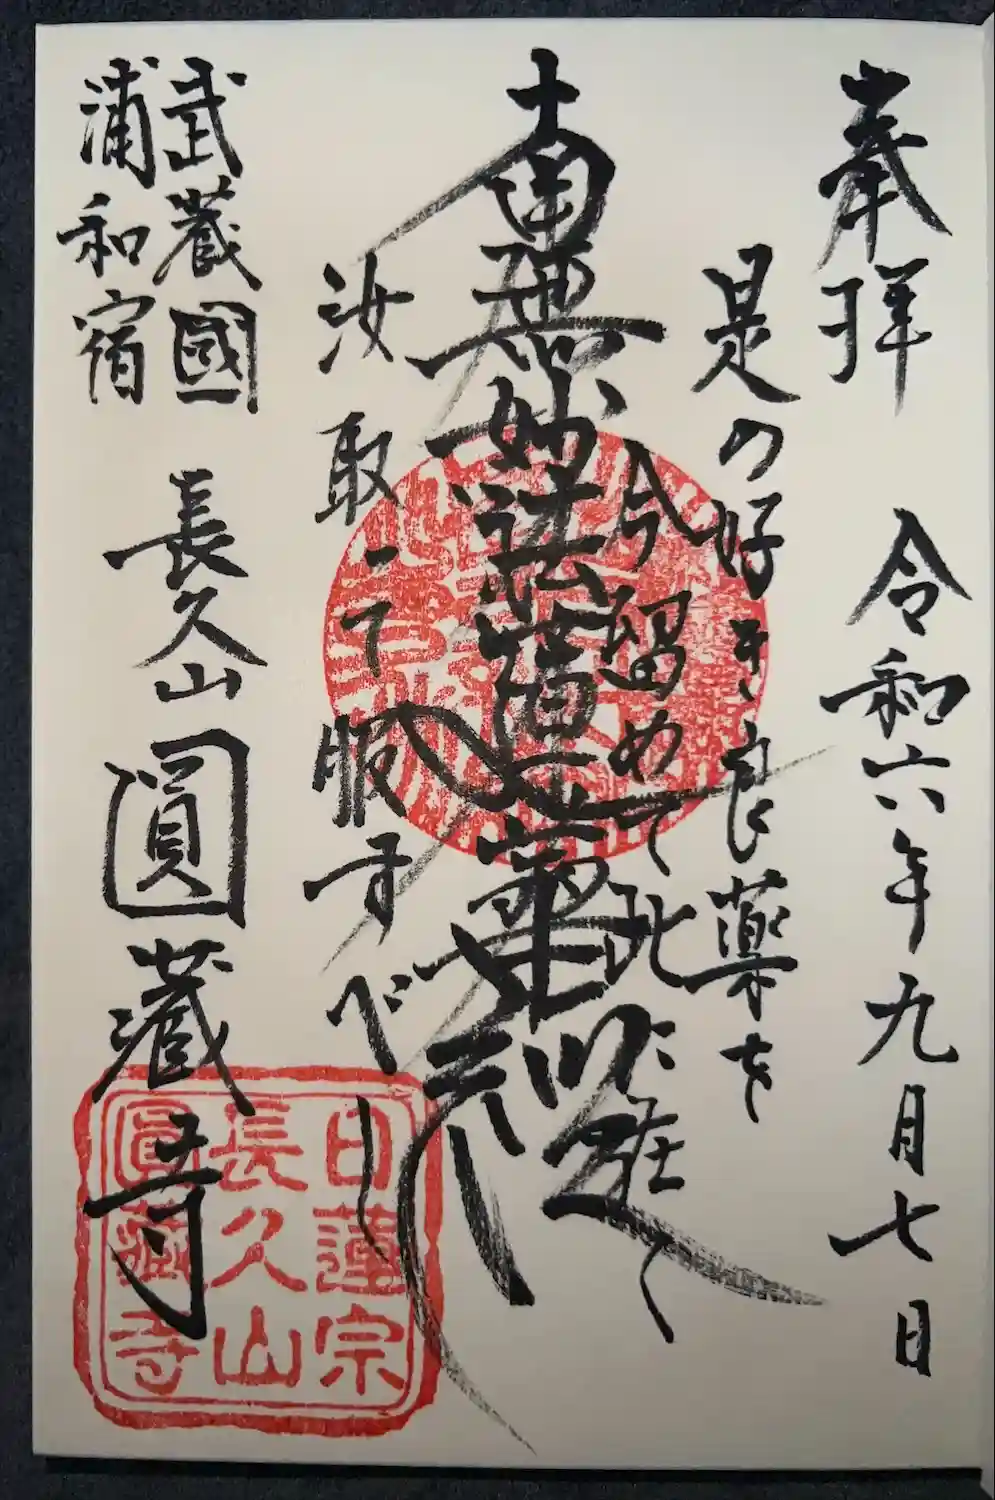 奉拝
令和六年九月七日
是の好き良薬を
今留めて此に在て
南無妙法蓮華経
汝取って服すべし
武蔵國
浦和宿
長久山圓蔵寺
日蓮宗
長久山
圓蔵寺